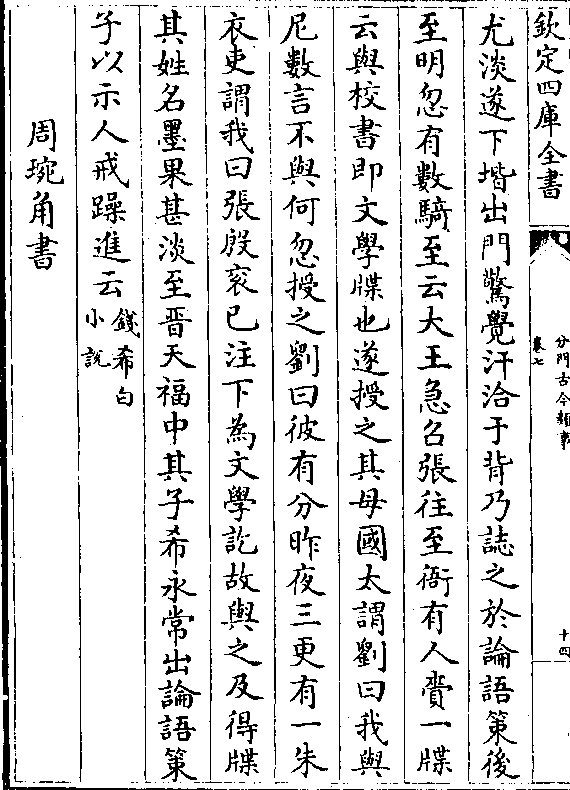 欽定四庫全書
分門古今類事
卷七
十四
尤淡遂下堦出門驚覺汗洽于背乃誌之於論語策後
至明忽有數騎至云大王急召張往至衙有人賫一牒
云與校書即文學牒也遂授之其母國太謂劉曰我與
尼數言不與何忽授之劉曰彼有分昨夜三更有一朱
衣吏謂我曰張殷衮已注下為文學訖故與之及得牒
其姓名墨果甚淡至晋天福中其子希永常出論語策
子以示人戒躁進云
錢希白
小說
周琬角書